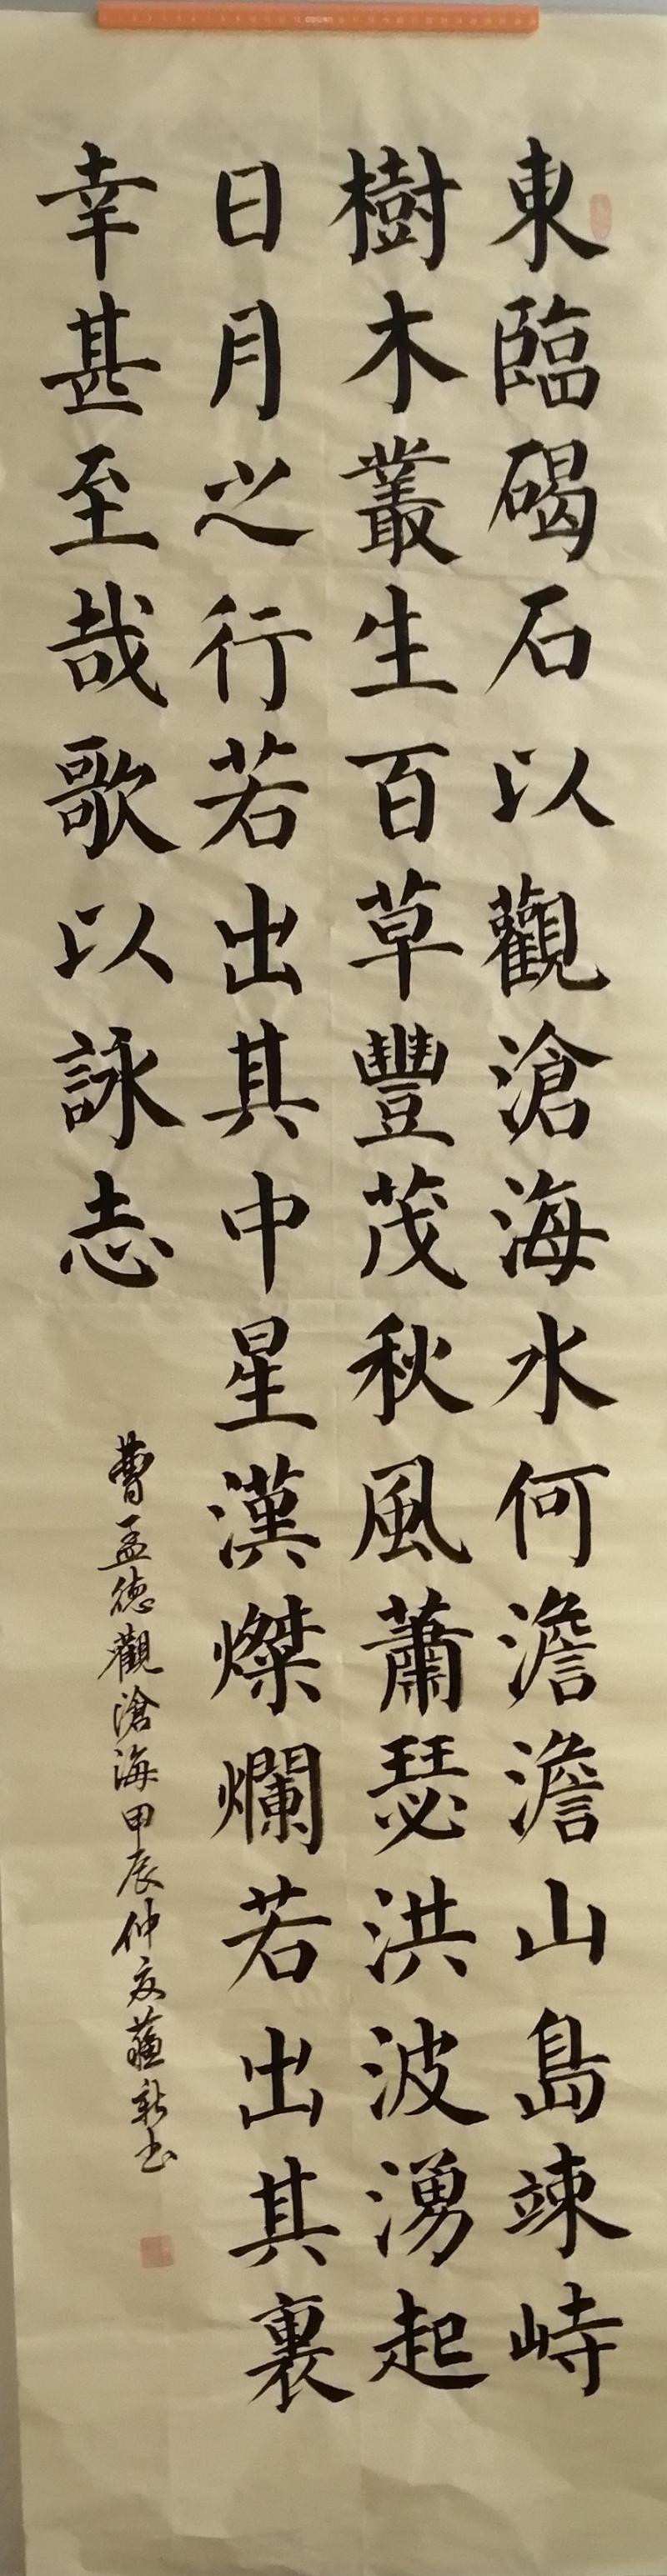 東臨碣石以觀滄海水何澹澹山島竦峙
樹木叢生百草豐茂秋風蕭瑟洪波湧起
日月之行若出其中星漢燦爛若出其裏
幸甚至哉歌以詠志
曹孟德觀滄海甲辰仲夏蘊新書